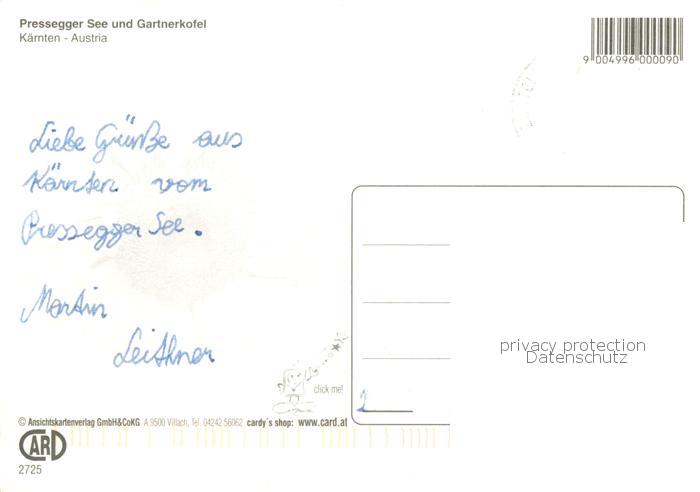 Pressegger See und Gartnerkofel
Kärnten - Austria
9 004996 000090
Liebe Grüße aus
Kärnten vom
Pressegger See.
Martin
Leithner
privacy protection
Datenschutz
click me!
© Ansichtskartenverlag GmbH&CoKG A 9500 Villach, Tel. 04242 56062 cardy's shop: www.card.at
CARD
2725